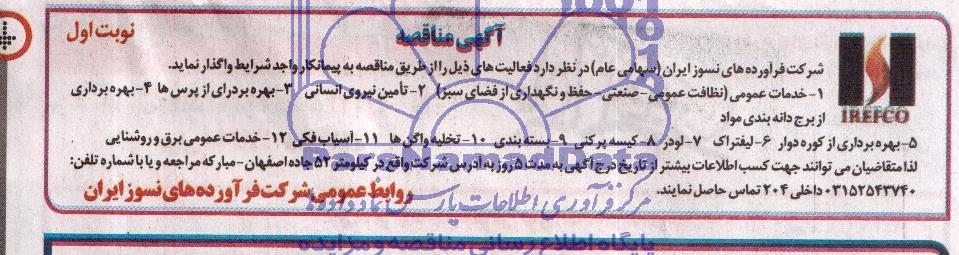 نوبت اول
آگهی مناقصه
IREFCO
شرکت فرآورده‌های نسوز ایران (سهامی عام) در نظر دارد فعالیت های ذیل را از طریق مناقصه به پیمانکار واجد شرایط واگذار نماید.
۱- خدمات عمومی (نظافت عمومی- صنعتی- حفظ و نگهداری از فضای سبز) ۲- تأمین نیروی انسانی ۳- بهره بردار‌ای از پرس ها ۴- بهره برداری
از برج دانه بندی مواد
۵- بهره برداری از کوره دوار ۶- لیفتراک ۷- لودر ۸- کیسه پرکنی ۹- بسته بندی ۱۰- تخلیه واگن ها ۱۱- آسیاب فکی ۱۲- خدمات عمومی برق و روشنایی
لذا متقاضیان می توانند جهت کسب اطلاعات بیشتر از تاریخ درج آگهی به مدت ۵ روز به آدرس شرکت واقع در کیلومتر ۵۲ جاده اصفهان- مبارکه مراجعه و یا با شماره تلفن:
۰۳۱۵۲۵۴۳۷۴۰ داخلی ۲۰۴ تماس حاصل نمایند.
روابط عمومی شرکت فرآورده های نسوز ایران
مرکز فرآوری اطلاعات پارس نماد داده ها
پایگاه اطلاع رسانی مناقصه و مزایده